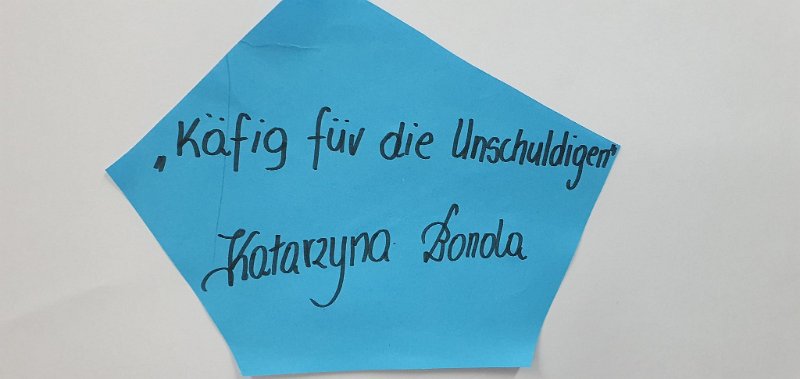 „Käfig für die Unschuldigen"
Katarzyna Bonda